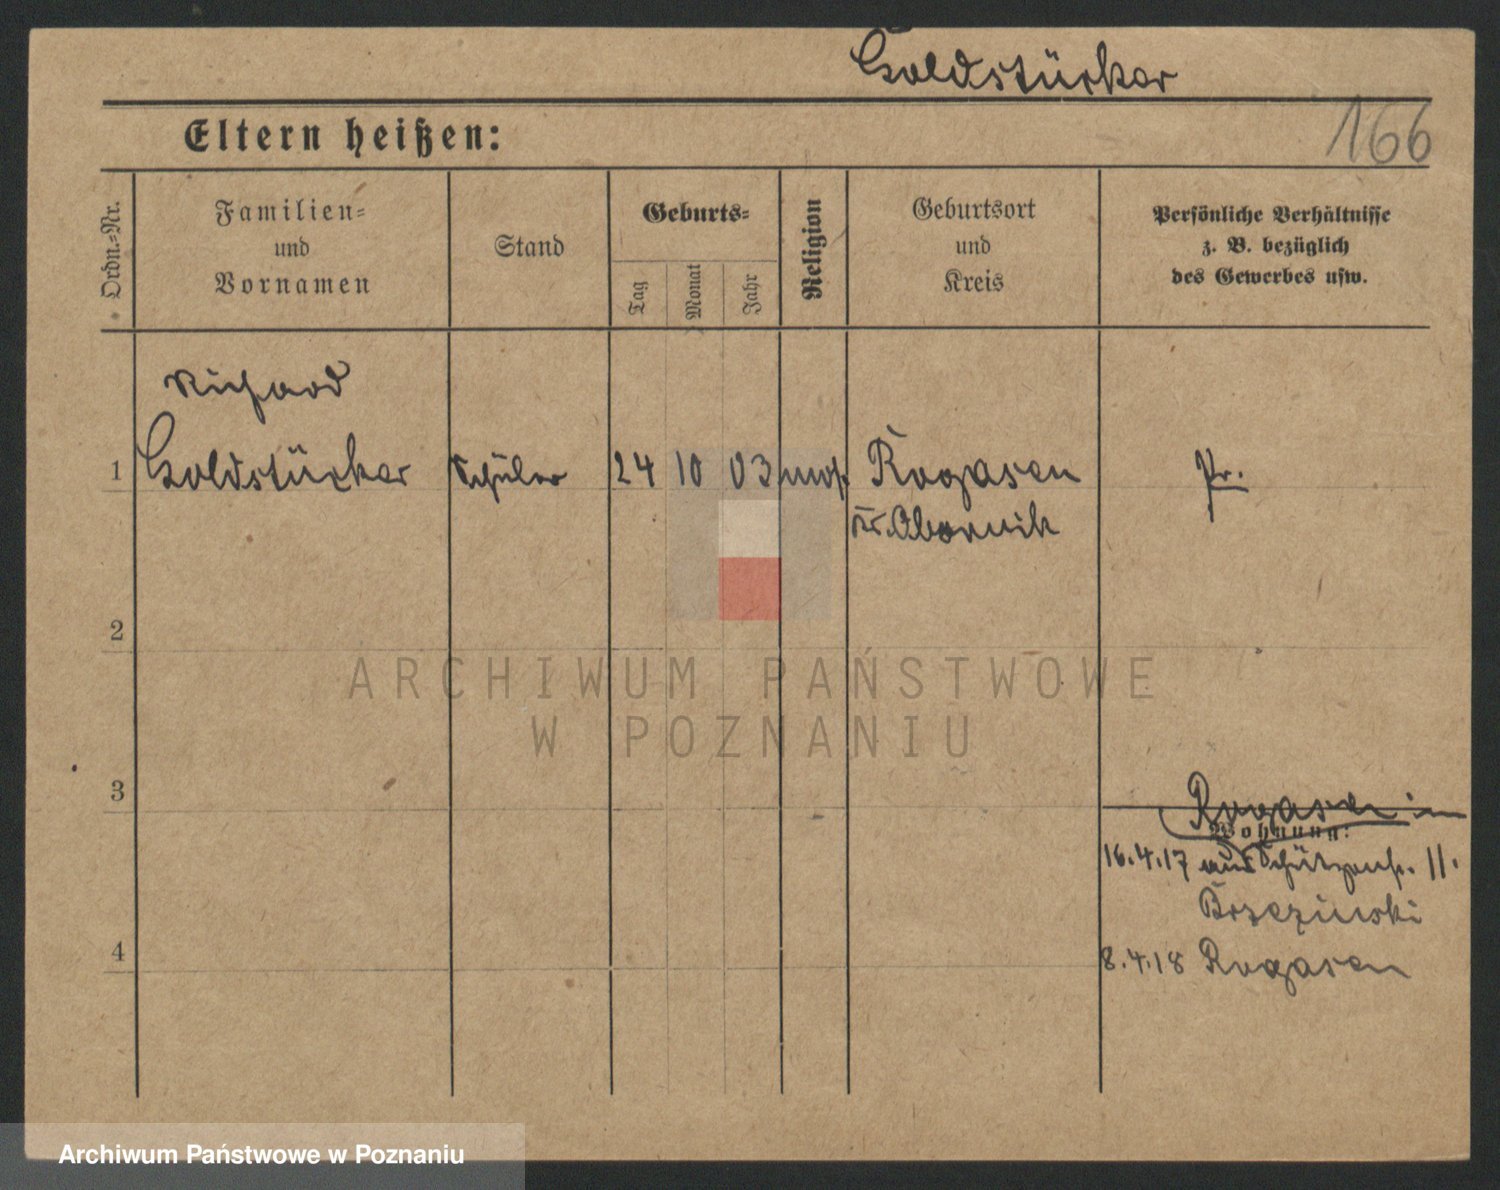 Goldstücker
Eltern heißen:
166
Ordn.=Nr.
Familien=
und
Vornamen
Stand
Geburts=
Tag
Monat
Jahr
Religion
Geburtsort
und
Kreis
Persönliche Verhältnisse
z. B. bezüglich
des Gewerbes usw.
Richard
1 Goldstücker Schüler 24 10 03 mos. Rogasen Pr.
Kr. Obornik
2
ARCHIWUM PAŃSTWOWE
W POZNANIU
3
Rogasen
Wohnung:
16.4.17 aus Schützenstr. 11.
Brzezinski
4
8.4.18 Rogasen
Archiwum Państwowe w Poznaniu